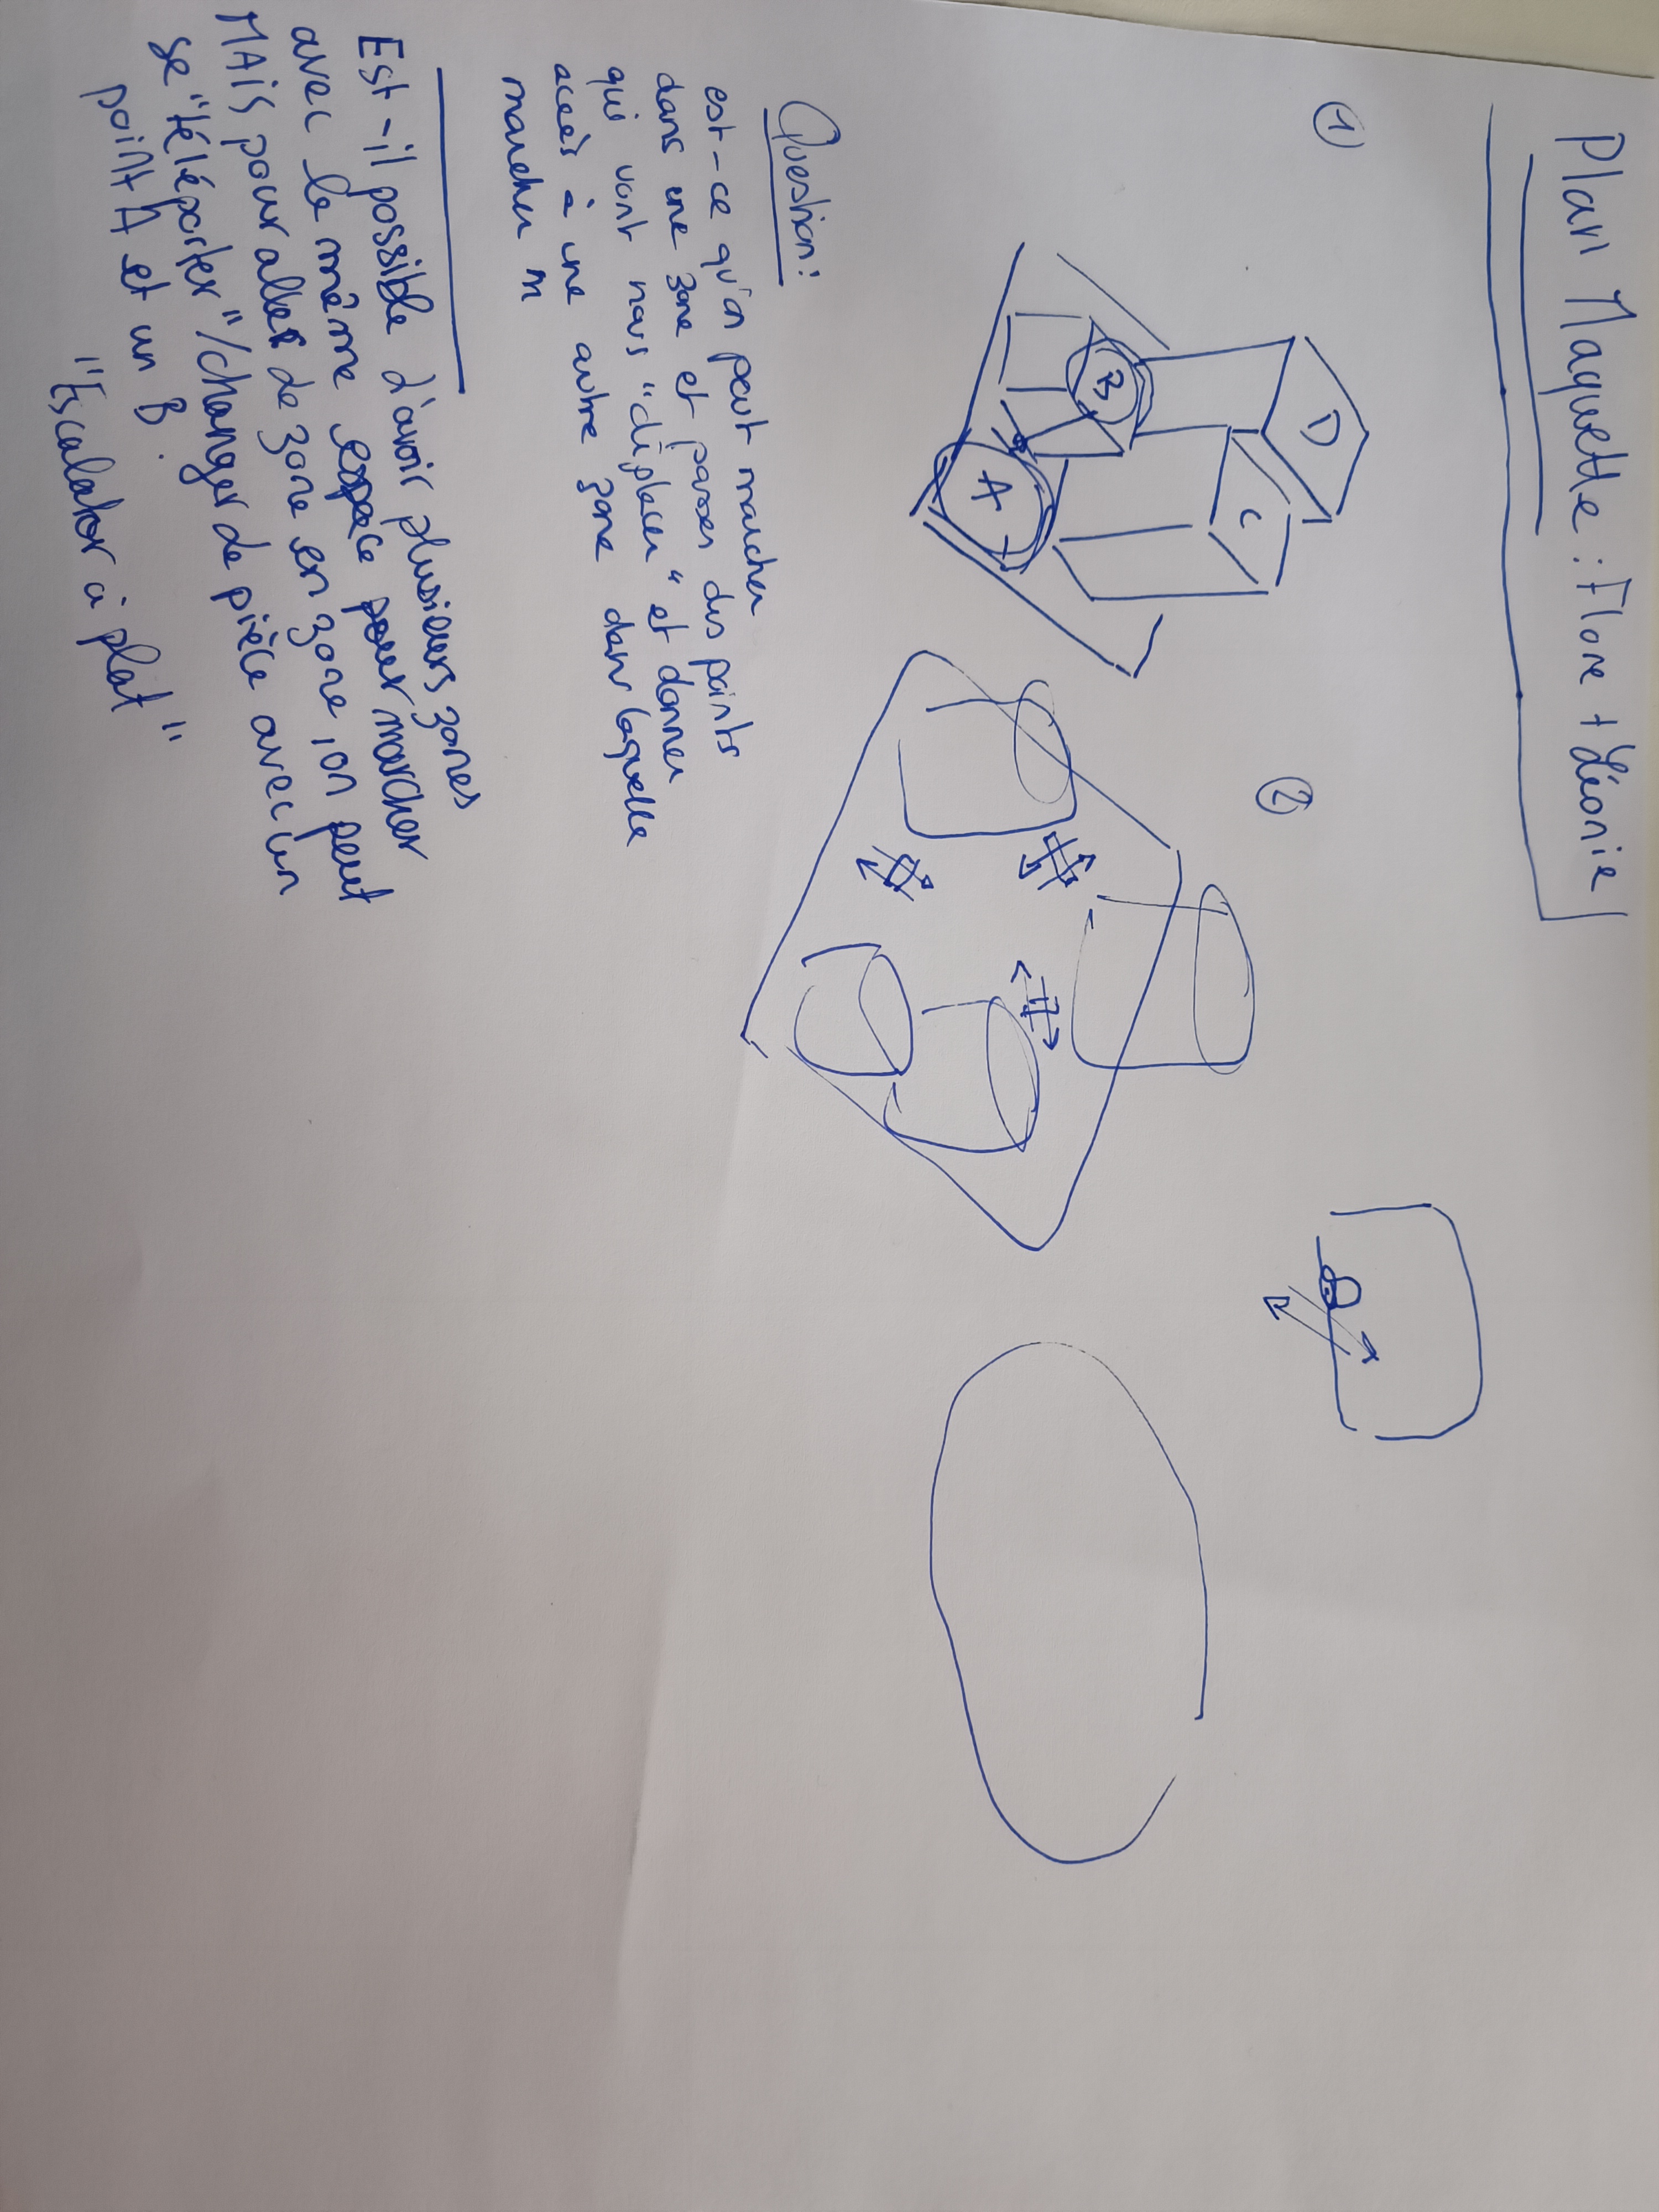 Plan Maquette : Flore + Léonie
①
A
B
C
D
②
Question :
est-ce qu'on peut marcher
dans une zone et passer des points
qui vont nous "déplacer" et donner
accès à une autre zone dans laquelle
marcher m
Est-il possible d'avoir plusieurs zones
avec le même espace pour marcher
MAIS pour aller de zone en zone, on peut
se "téléporter"/changer de pièce avec un
point A et un B.
"Escalator à plat"